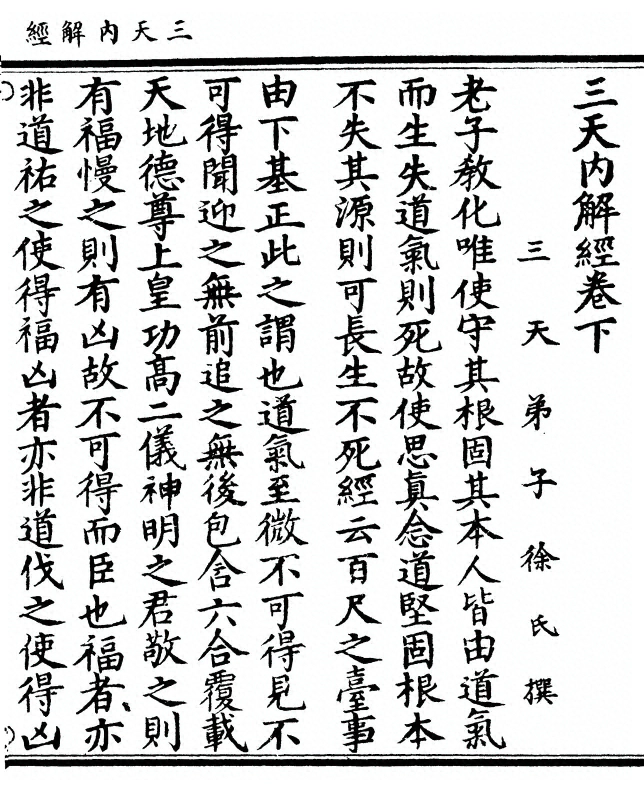 三天内解經
三天内解經卷下
三天弟子徐氏撰
老子教化唯使守其根固其本人皆由道氣
而生失道氣則死故使思真念道堅固根本
不失其源則可長生不死經云百尺之臺事
由下基正此之謂也道氣至微不可得見不
可得聞迎之無前追之無後包含六合覆載
天地德尊上皇功高二儀神明之君敬之則
有福慢之則有凶故不可得而臣也福者亦
非道祐之使得福凶者亦非道伐之使得凶